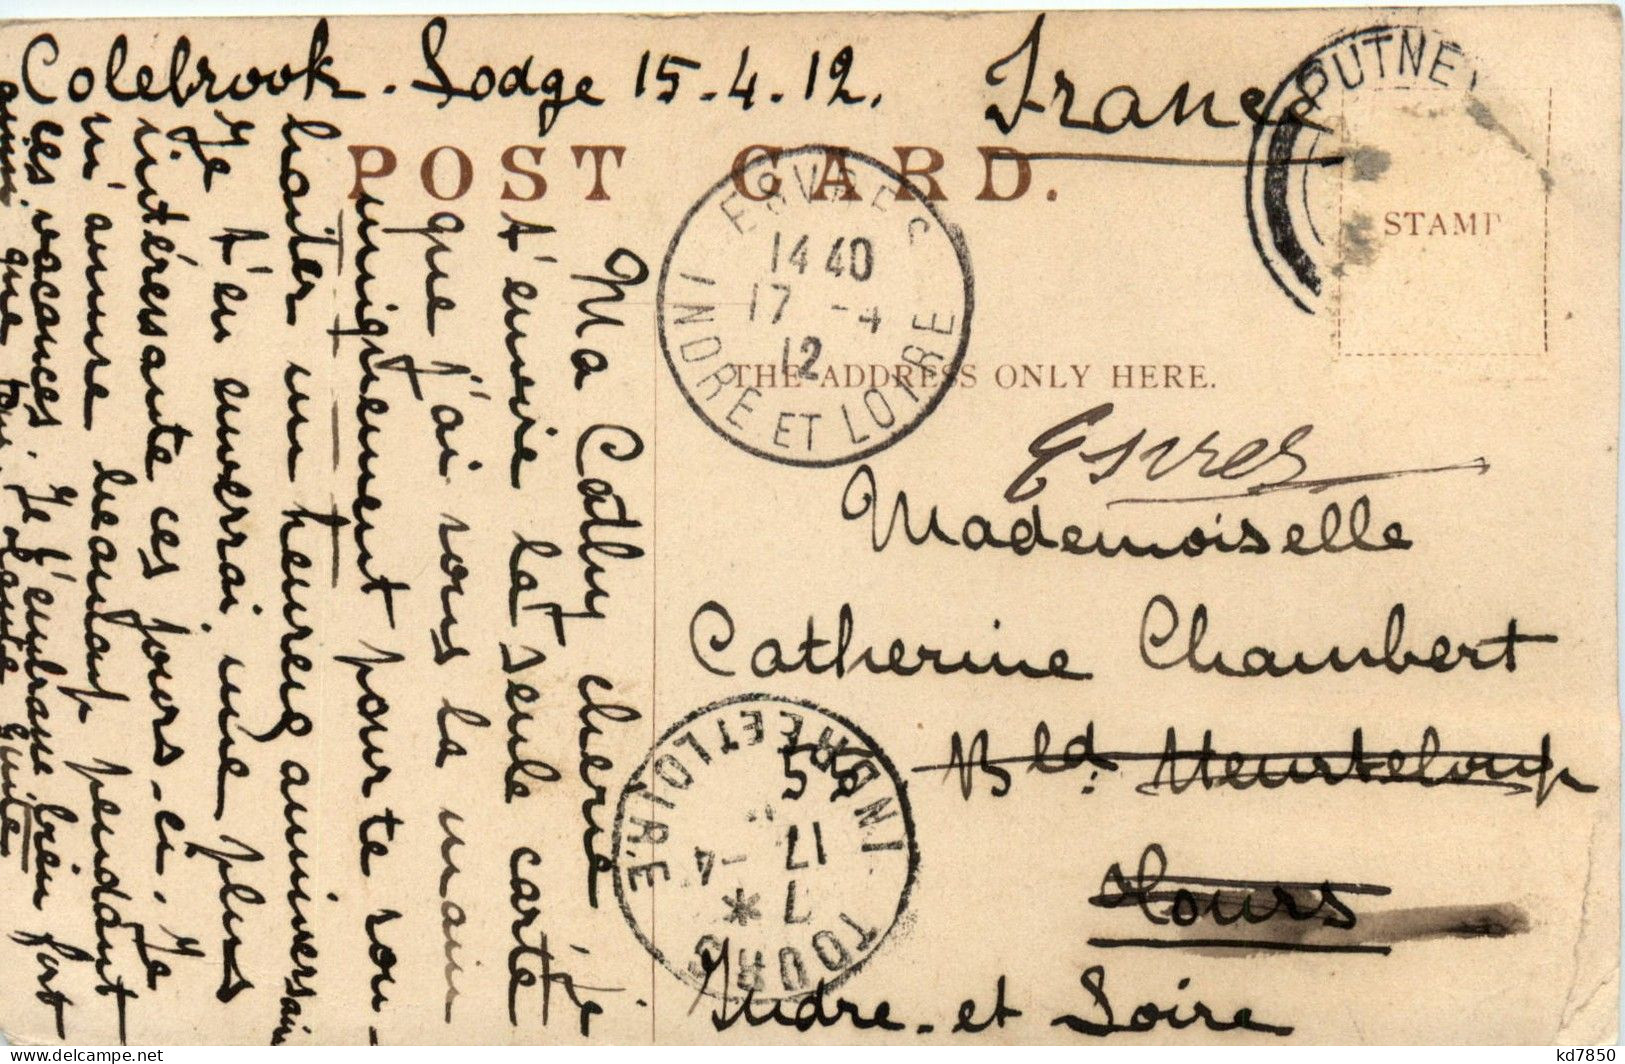 Colebrook. Lodge 15.4.12.
France
PUTNE
POST CARD.
STAMP
THE ADDRESS ONLY HERE.
ESVRES
14 40
17 -4
12
INDRE ET LOIRE
Esvres
Mademoiselle
Catherine Chambert
Bld. Heurteloup
Tours
Indre. et Loire
TOURS
17 -4
INDRE ET LOIRE
Ma Cathy chérie, je
t'envoie la seule carte
que j'ai sous la main
uniquement pour te sou-
haiter un heureux anniversaire
Je t'en enverrai une plus
intéressante ces jours-ci. Je
m'amuse beaucoup pendant
ces vacances. Je t'embrasse bien fort
ainsi que Guite
kd7850